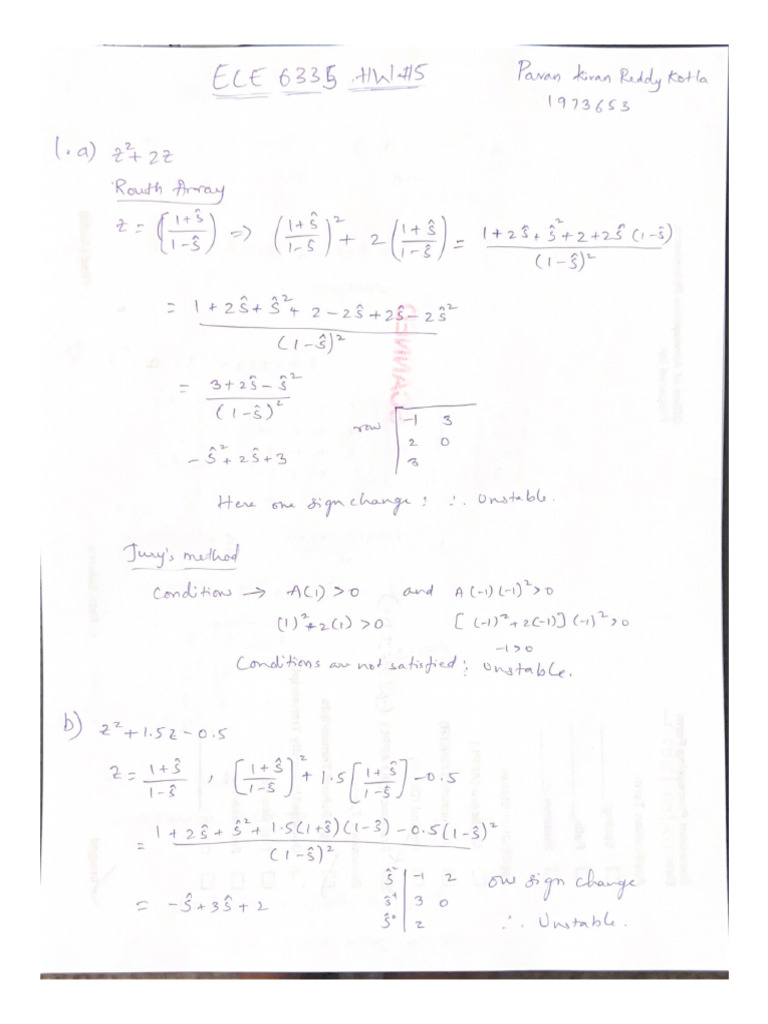 ECE 6335 HW#5
Pavan Kiran Reddy Kotla
1973653
1.a) z²+2z
Routh Array
z = (1+ŝ / 1-ŝ) => (1+ŝ / 1-ŝ)² + 2 (1+ŝ / 1-ŝ) = 1+2ŝ+ŝ²+2+2ŝ (1-ŝ) / (1-ŝ)²
= 1+2ŝ+ŝ²+2-2ŝ+2ŝ-2ŝ² / (1-ŝ)²
= 3+2ŝ-ŝ² / (1-ŝ)²
-ŝ²+2ŝ+3
row | -1 3
2 0
3
Here one sign change; ∴ Unstable.
Jury's method
Condition → A(1)>0 and A(-1)(-1)²>0
(1)²+2(1)>0 [(-1)²+2(-1)](-1)²>0
-1>0
Conditions are not satisfied; Unstable.
b) z²+1.5z-0.5
z = 1+ŝ / 1-ŝ , [1+ŝ / 1-ŝ]² + 1.5[1+ŝ / 1-ŝ] -0.5
= 1+2ŝ+ŝ²+1.5(1+ŝ)(1-ŝ)-0.5(1-ŝ)² / (1-ŝ)²
= -ŝ+3ŝ+2
ŝ² | -1 2
ŝ¹ | 3 0
ŝ⁰ | 2
one sign change
∴ Unstable.